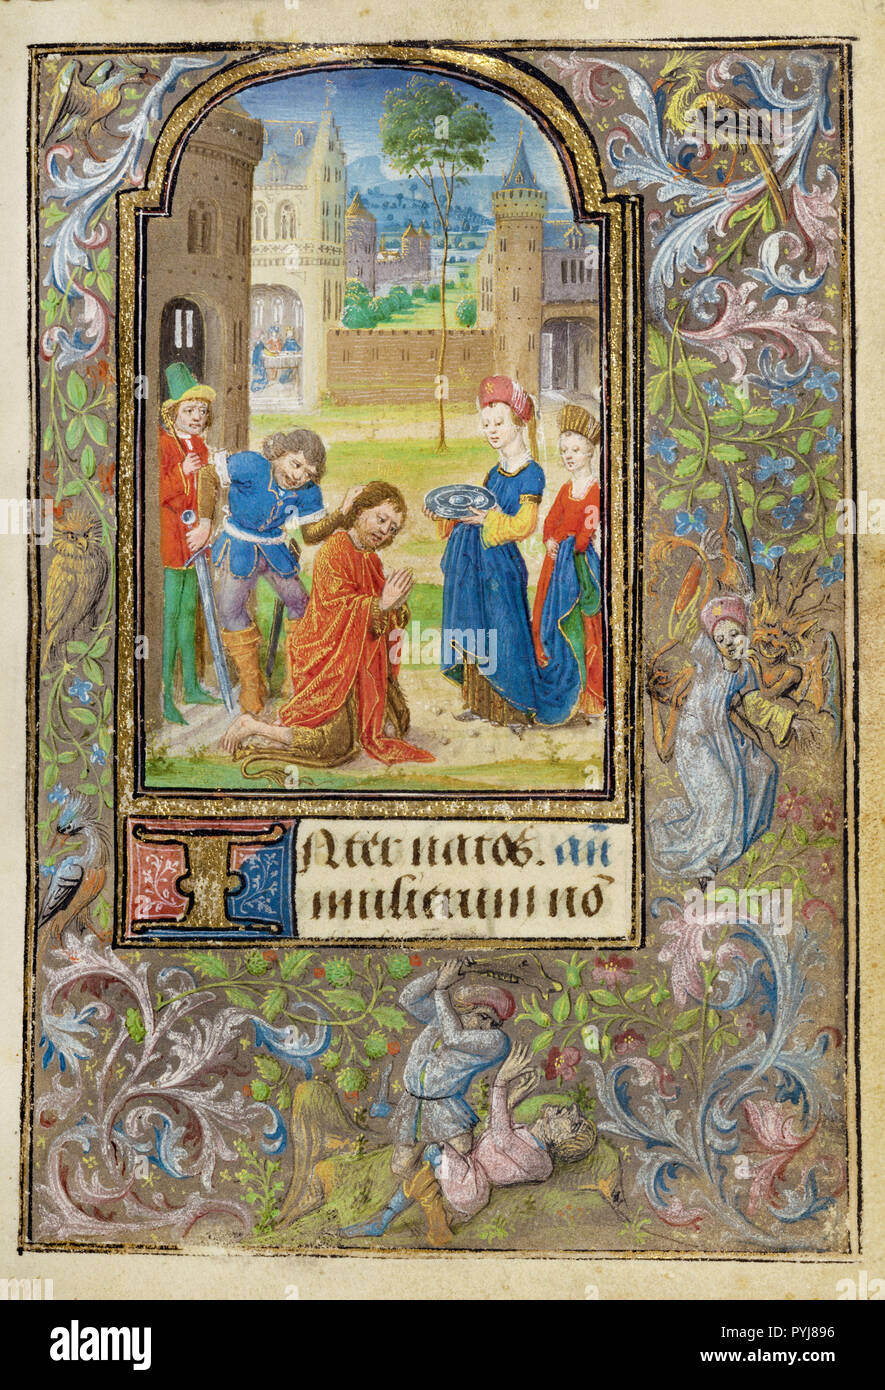 INter natos. an̄
mulierum nō
alamy
Image ID: PYJ896
www.alamy.com